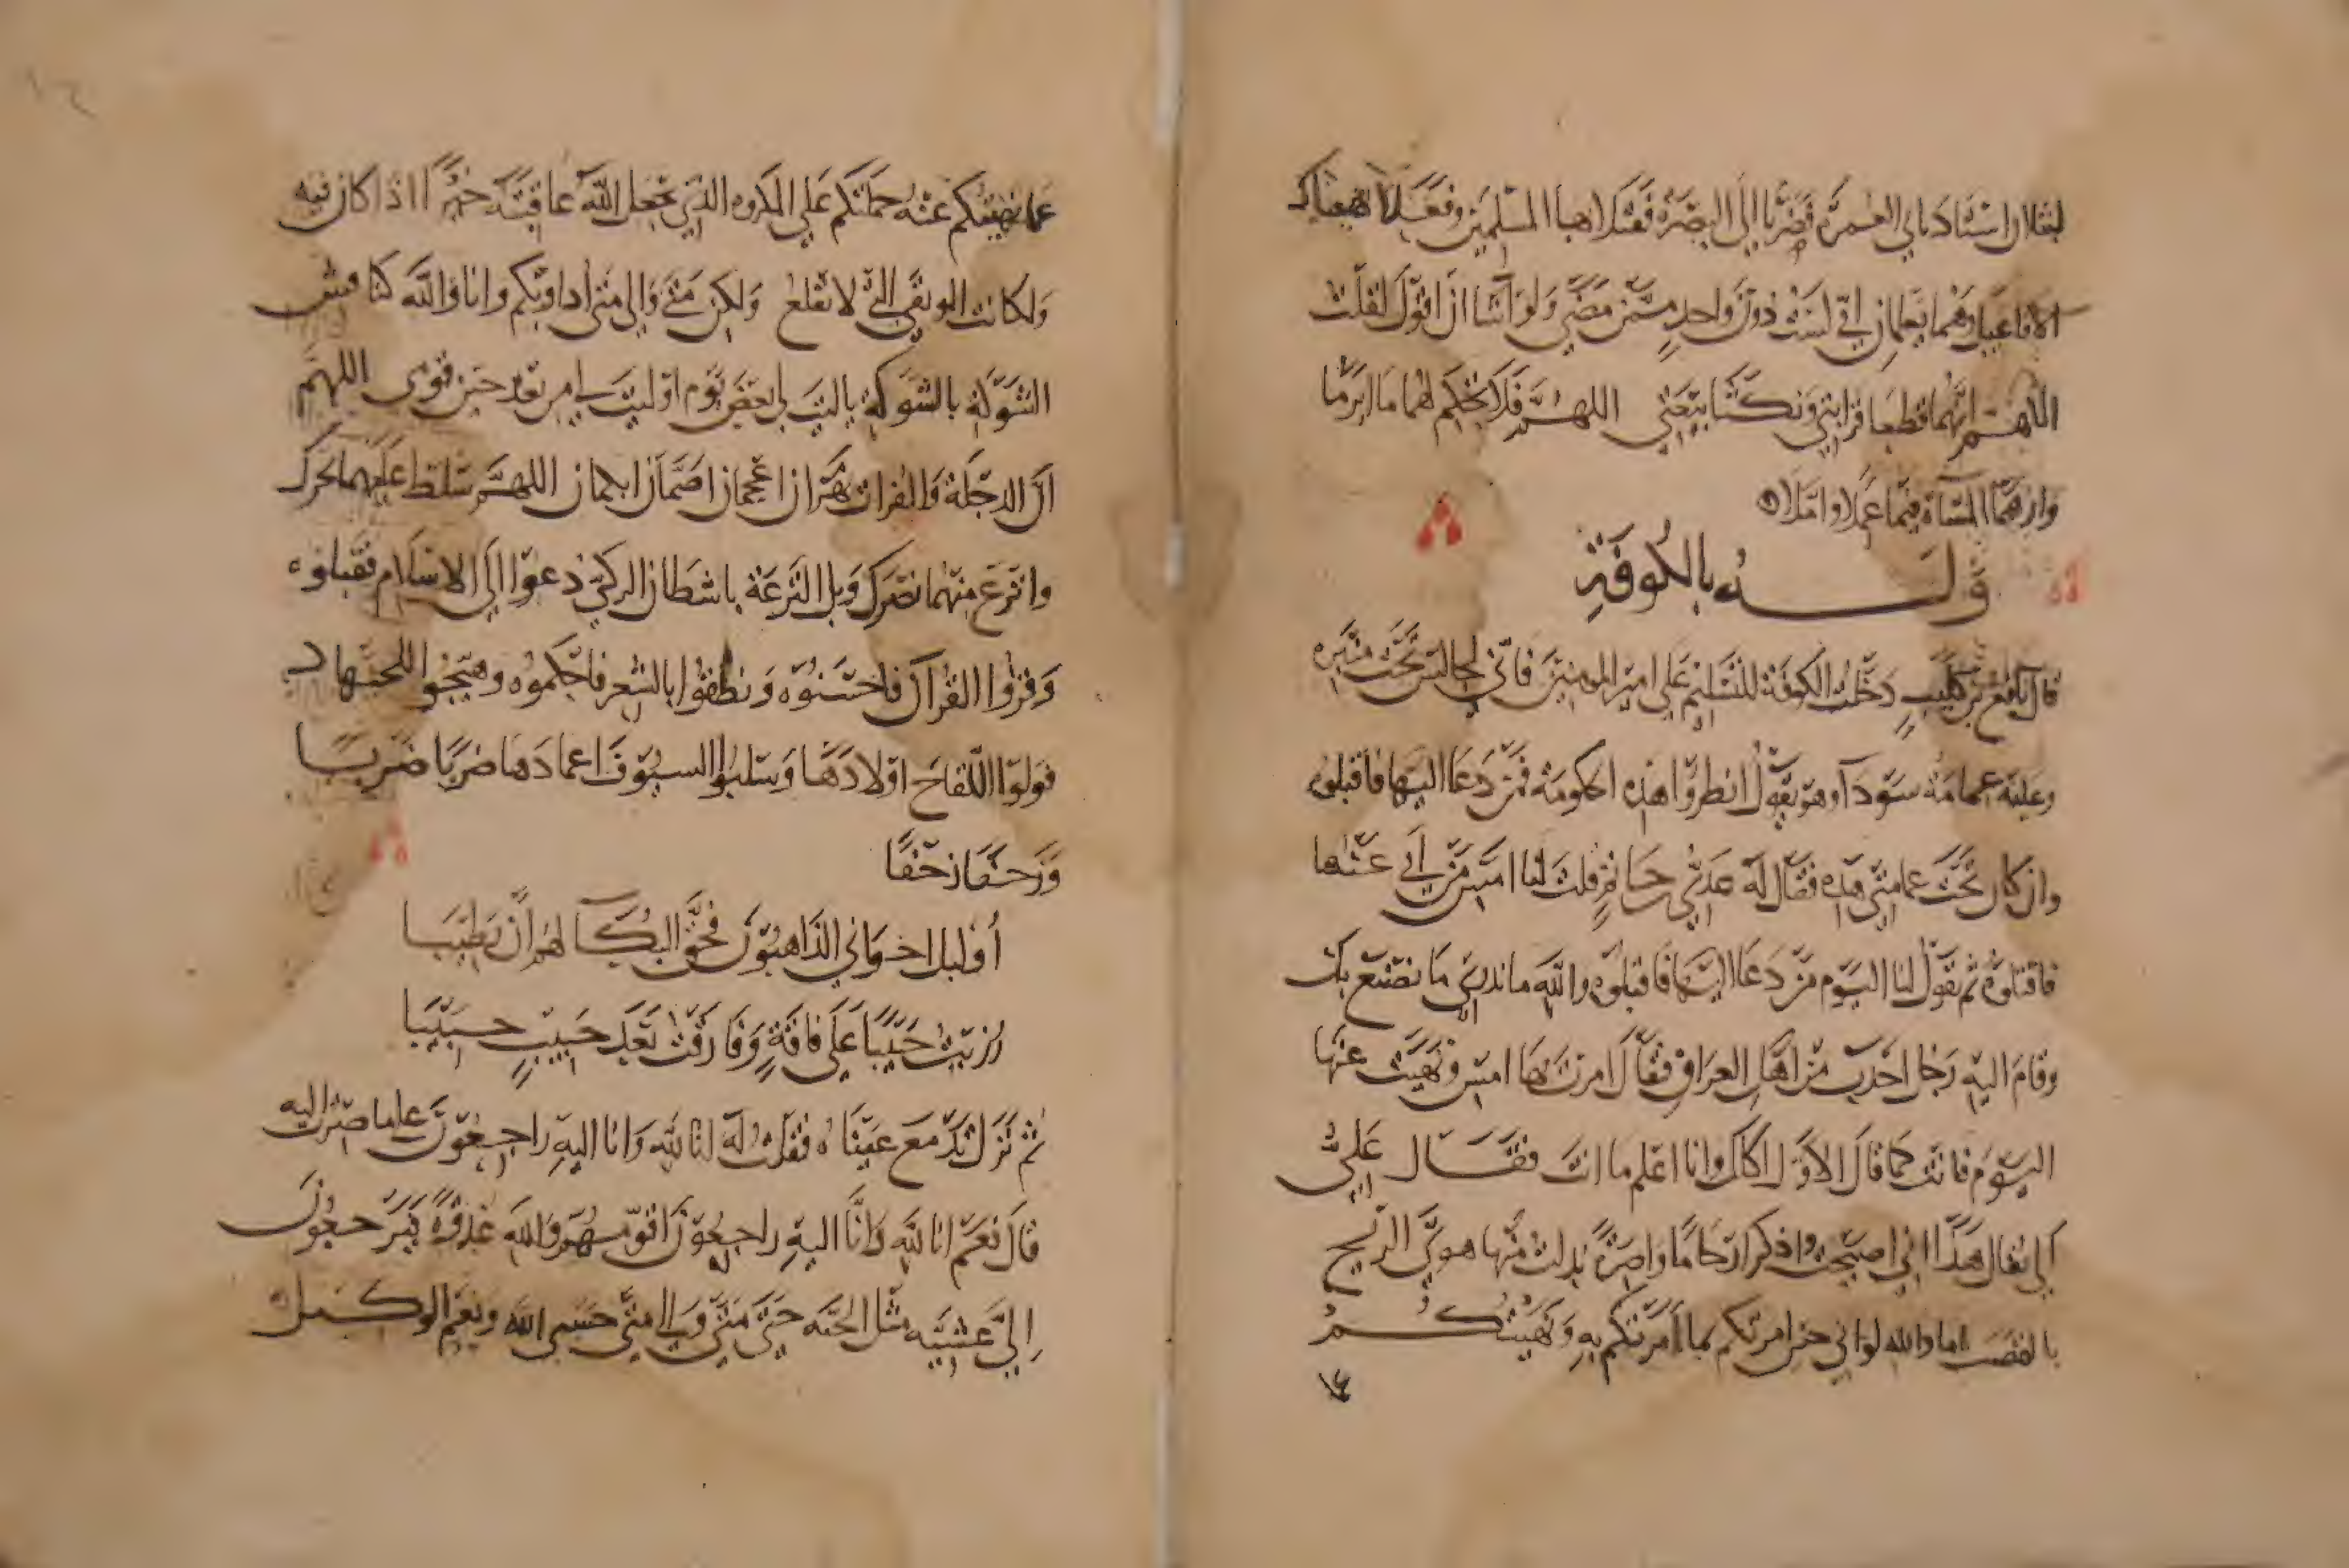 لبثلاا ان استاذناني العمرة فصربا الى البصرة فقتلا اهبا المسلمين وفعلا
الافاعيل وهما يعلمان اني لست دون واحد ممن مضى ولو اشا ان اقول لقلت
اللهم انهما قطعا قرابتي ونكثا بيعتي اللهم فلا تحكم لهما ما ابرما
وارهما المساة فيما عملا واملا
قوله بالكوفة
قال نافع بن كليب دخلت الكوفة للتسليم على امير المومنين فاني لجالس تحت منبره
وعليه عمامة سودآ وهو يقول انظروا هذه الحكومة فمن دعا اليها فاقتلوه
وان كان تحت عمامتي هذه فقال له عدي حاتم قلت لنا امس من ابى عنها
فاقتلوه ثم تقول لنا اليوم من دعا اليها فاقتلوه والله ما ندري ما نصنع بك
وقام اليه رجل احدب من اهل العراق فقال امرت بها امس ونهيت عنها
اليوم فانت كما قال الاول اكلك وانا اعلم ما انت فقال علي
الي يقال هذا اني اصبحت واذكر ارحاما واصرة بدلت منها هوي الريح
بالقصب اما والله لو اني حين امرتكم بما امرتكم به ونهيتكم
١٤
عما نهيتكم عنه حملتكم على المكروه الذي يجعل الله عاقبته خيرا اذا كان فيه
ولكانت الوثقى التي لا تقلع ولكن متى والى متى اداويكم وانا والله كناقش
الشوكة بالشوكة ياليت لي بعض يوم او ليت لي من بعد حين قومى اللهم
ان الدجلة والفرات نهران اعجمان اصمان ابكمان اللهم سلط عليهما بحرك
وانزع منهما نصرك ويل النزعة باشطان الركي دعوا الى الاسلام فقبلوه
وقروا القران فاحسنوه ونطقوا بالشعر فاحكموه وهيجوا الى الجهاد
فولوا اللقاح اولادها وسلبوا السيوف اغمادها ضربا ضربا
وزحفا زحفا
أوليل اخواني الذاهبون فحق البكآ لهم ان يطيبا
رزيت حبيبا على فاقة وفارقت بعد حبيب حبيبا
ثم نزل تدمع عيناه فقلت له انا لله وانا اليه راجعون على ما صرت اليه
قال نعم انا لله وانا اليه راجعون اقومهم والله غدوة فيرجعون
الي عشية مثل الحية حتى متى والى متى حسبي الله ونعم الوكيل